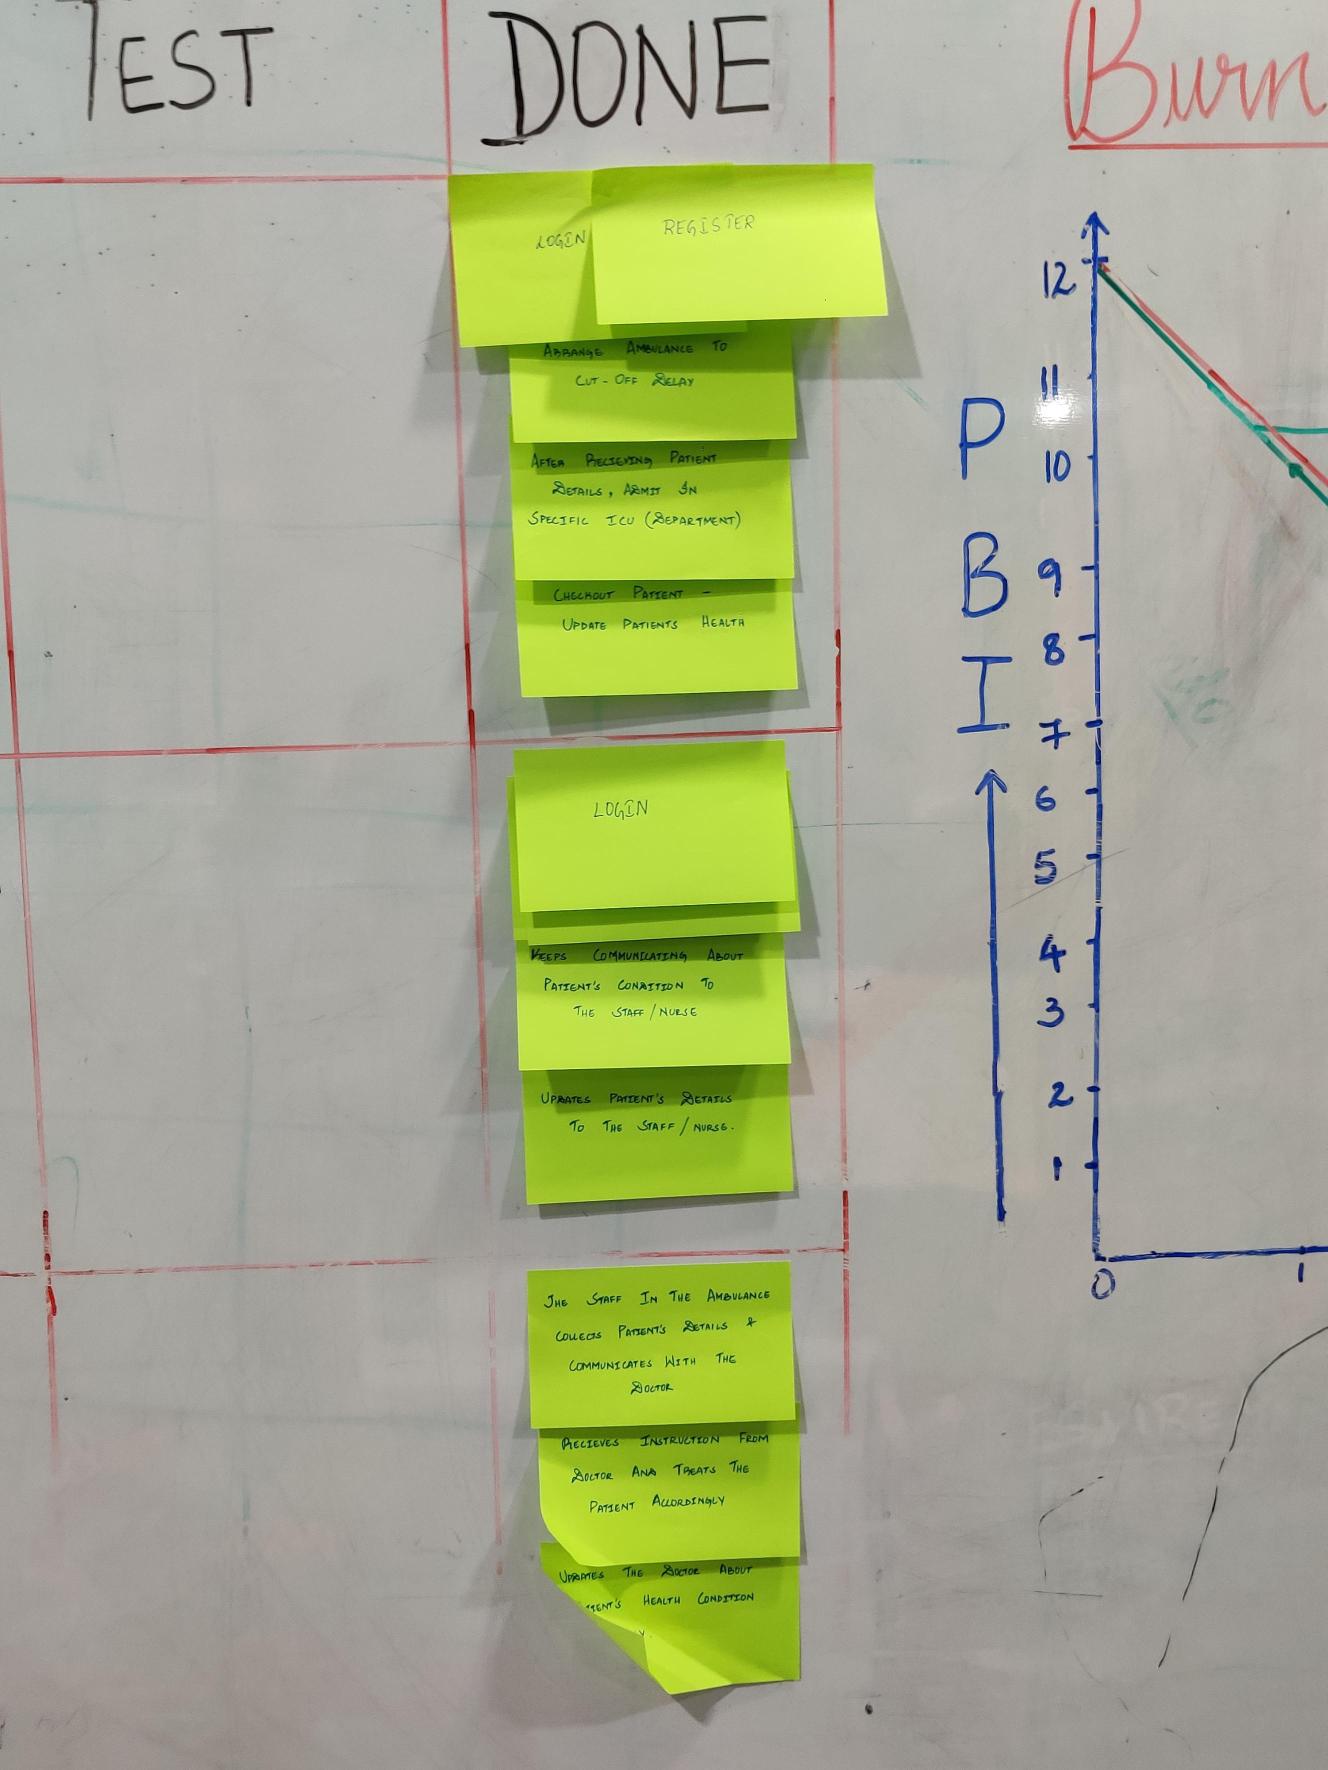 TEST
DONE
Burn
LOGIN
REGISTER
ARRANGE AMBULANCE TO
CUT-OFF DELAY
AFTER RECIEVING PATIENT
DETAILS, ADMIT IN
SPECIFIC ICU (DEPARTMENT)
CHECKOUT PATIENT -
UPDATE PATIENTS HEALTH
LOGIN
KEEPS COMMUNICATING ABOUT
PATIENT'S CONDITION TO
THE STAFF/NURSE
UPDATES PATIENT'S DETAILS
TO THE STAFF/NURSE.
THE STAFF IN THE AMBULANCE
COLLECTS PATIENT'S DETAILS &
COMMUNICATES WITH THE
DOCTOR
RECIEVES INSTRUCTION FROM
DOCTOR AND TREATS THE
PATIENT ACCORDINGLY
UPDATES THE DOCTOR ABOUT
HEALTH CONDITION
P
B
I
12
11
10
9
8
7
6
5
4
3
2
1
0
1